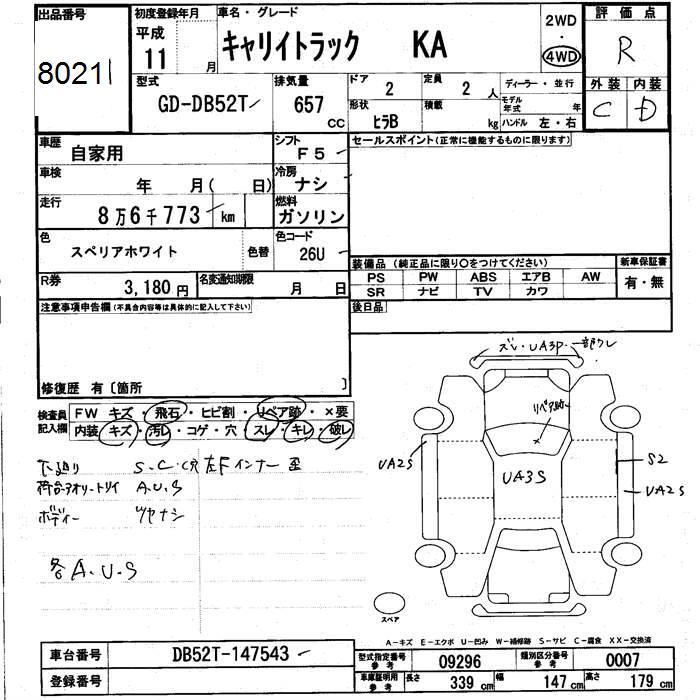 出品番号
80211
初度登録年月
平成
11 月
車名・グレード
キャリイトラック KA
2WD
・
4WD
評価点
R
外装 内装
C D
型式
GD-DB52T
排気量
657
CC
ドア 2
定員 2 人
形状 ヒラB
積載 kg
ディーラー・並行
モデル年式 年
ハンドル 左・右
車歴 自家用
シフト F5
セールスポイント(正常に機能するものに限ります)
車検 年 月( 日)
冷房 ナシ
走行 8万6千773 km
燃料 ガソリン
色 スペリアホワイト 色替
色コード 26U
R券 3,180円
名変通知期限 月 日
装備品(純正品に限り○をつけてください)
PS PW ABS エアB AW
SR ナビ TV カワ
新車保証書
有・無
注意事項申告欄(不具合内容等は具体的に記入して下さい)
後日品
修復歴 有〔箇所 〕
検査員記入欄
FW キズ・飛石・ヒビ割・リペア跡・×要
内装 キズ・汚レ・コゲ・穴・スレ・キレ・破レ
下廻り S.C.穴 左Fインナー歪
荷台・アオリ・トリイ A.U.S
ボディー ツヤナシ
各A.U.S
ズレ・UA3P・一部ワレ
リペア跡
UA2S
UA3S
S2
UA2S
スペア
A-キズ E-エクボ U-凹み W-補修跡 S-サビ C-腐食 XX-交換済
車台番号 DB52T-147543
登録番号
型式指定番号 参考 09296
類別区分番号 参考 0007
車庫証明用 参考 長さ 339 cm 幅 147 cm 高さ 179 cm